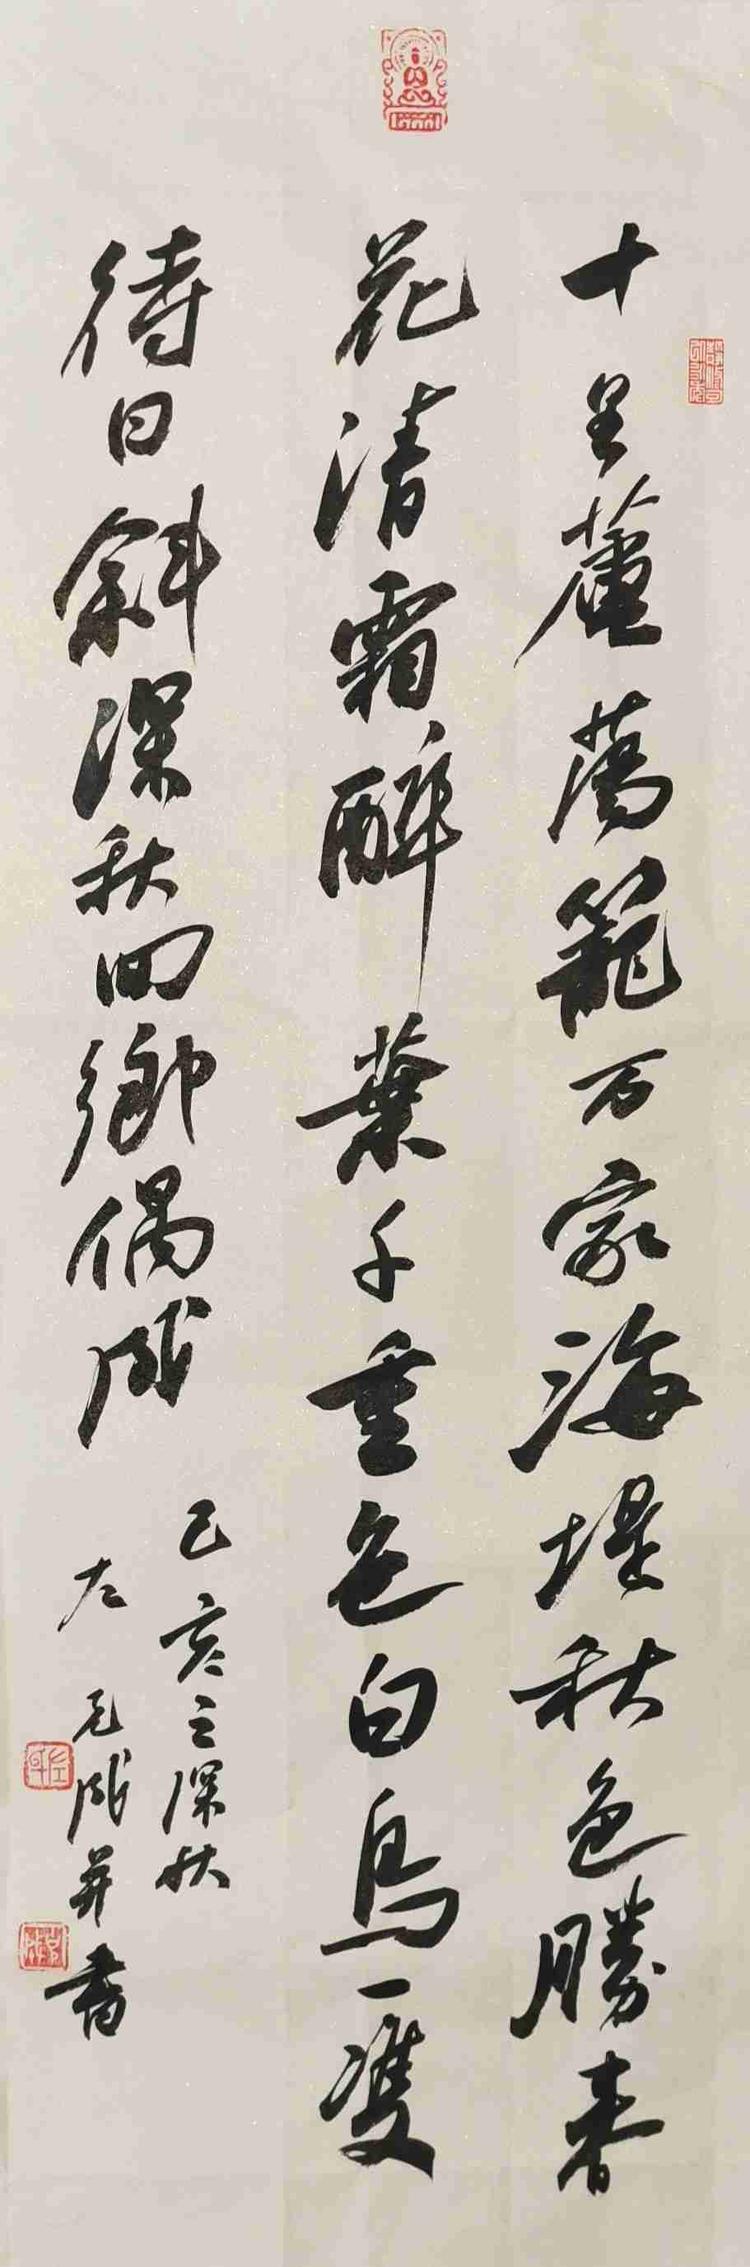 十里蘆蕩籠万家海堤秋色勝春
花清霜醉葉千重色白鳥一雙
待日斜深秋回鄉偶成
己亥之深秋
左 成并書